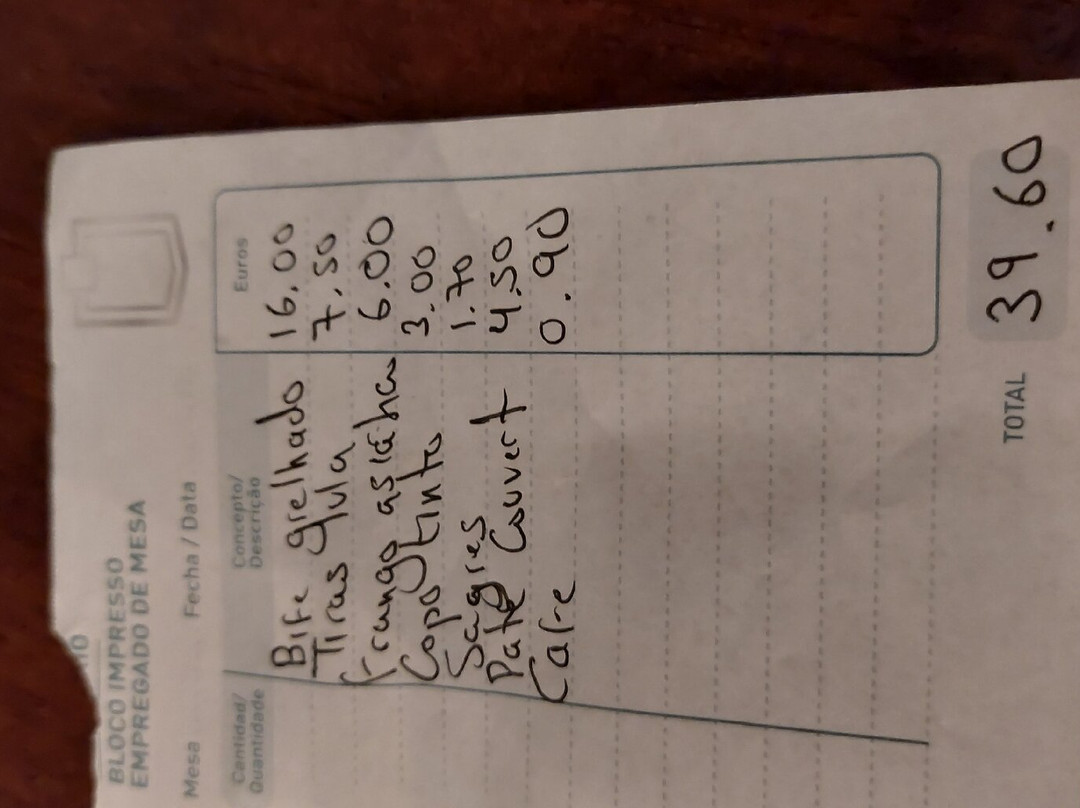 BLOCO IMPRESSO
EMPREGADO DE MESA
Mesa Fecha / Data
Cantidad/ Quantidade Concepto/ Descrição Euros
Bife grelhado 16.00
Tiras 7.50
Frango 6.00
Copo tinto 3.00
Sagres 1.70
Pate Couvert 4.50
Cafe 0.90
TOTAL 39.60